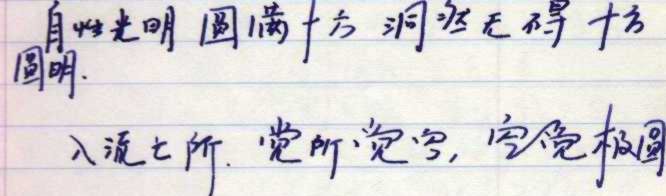 自性光明 圆满十方 洞然无碍 十方
圆明.
入流亡所. 觉所觉空, 空觉极圆